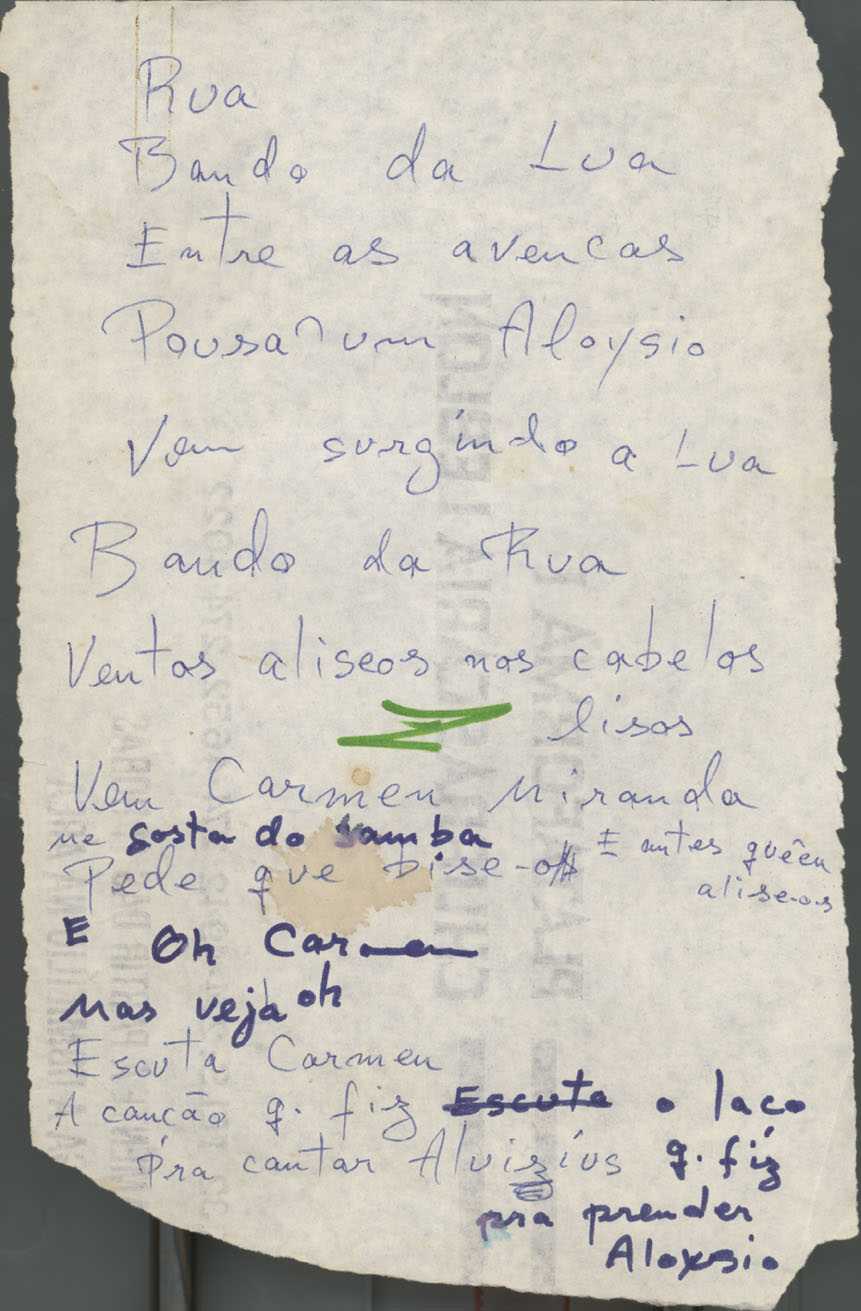 Rua
Bando da Lua
Entre as avencas
Pousa um Aloysio
Vem surgindo a Lua
Bando da Rua
Ventos aliseos nos cabelos
lisos
Vem Carmen Miranda
me gosta do samba
E antes quêen
Pede que bise-os
alise-os
E Oh Carmen
mas veja oh
Escuta Carmen
A canção q. fiz Escuta o laco
pra cantar Aluizíus q. fiz
pra prender
Aloysio